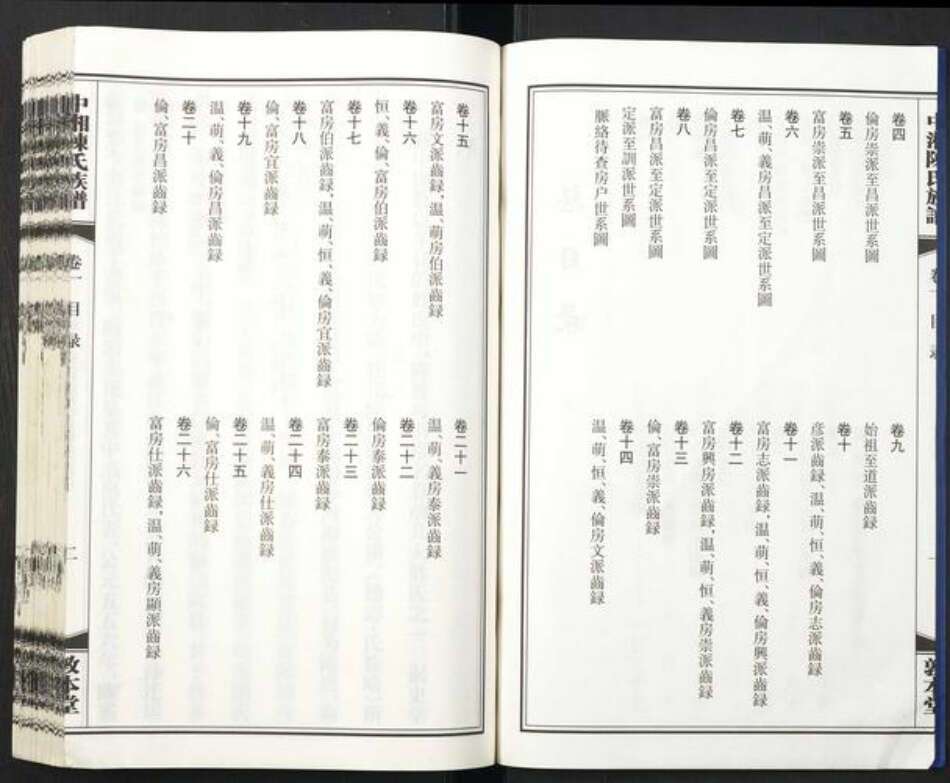 卷四
倫房崇派至昌派世系圖
卷五
富房崇派至昌派世系圖
卷六
温、萌、義房昌派至定派世系圖
卷七
倫房昌派至定派世系圖
卷八
富房昌派至定派世系圖
定派至訓派世系圖
脈絡待查房户世系圖
卷九
始祖至道派齒録
卷十
彦派齒録、温、萌、恒、義、倫房志派齒録
卷十一
富房志派齒録，温、萌、恒、義、倫房興派齒録
卷十二
富房興房派齒録，温、萌、恒、義房崇派齒録
卷十三
倫、富房崇派齒録
卷十四
温、萌、恒、義、倫房文派齒録
敦本堂
卷十五
富房文派齒録，温、萌房伯派齒録
卷十六
恒、義、倫、富房伯派齒録
卷十七
富房伯派齒録、温、萌、恒、義、倫房宜派齒録
卷十八
倫、富房宜派齒録
卷十九
温、萌、義、倫房昌派齒録
卷二十
倫、富房昌派齒録
卷二十一
温、萌、義房泰派齒録
卷二十二
倫房泰派齒録
卷二十三
富房泰派齒録
卷二十四
温、萌、義房仕派齒録
卷二十五
倫、富房仕派齒録
卷二十六
富房仕派齒録，温、萌、義房顯派齒録
中湘陳氏族譜
卷一 目录
二
敦本堂